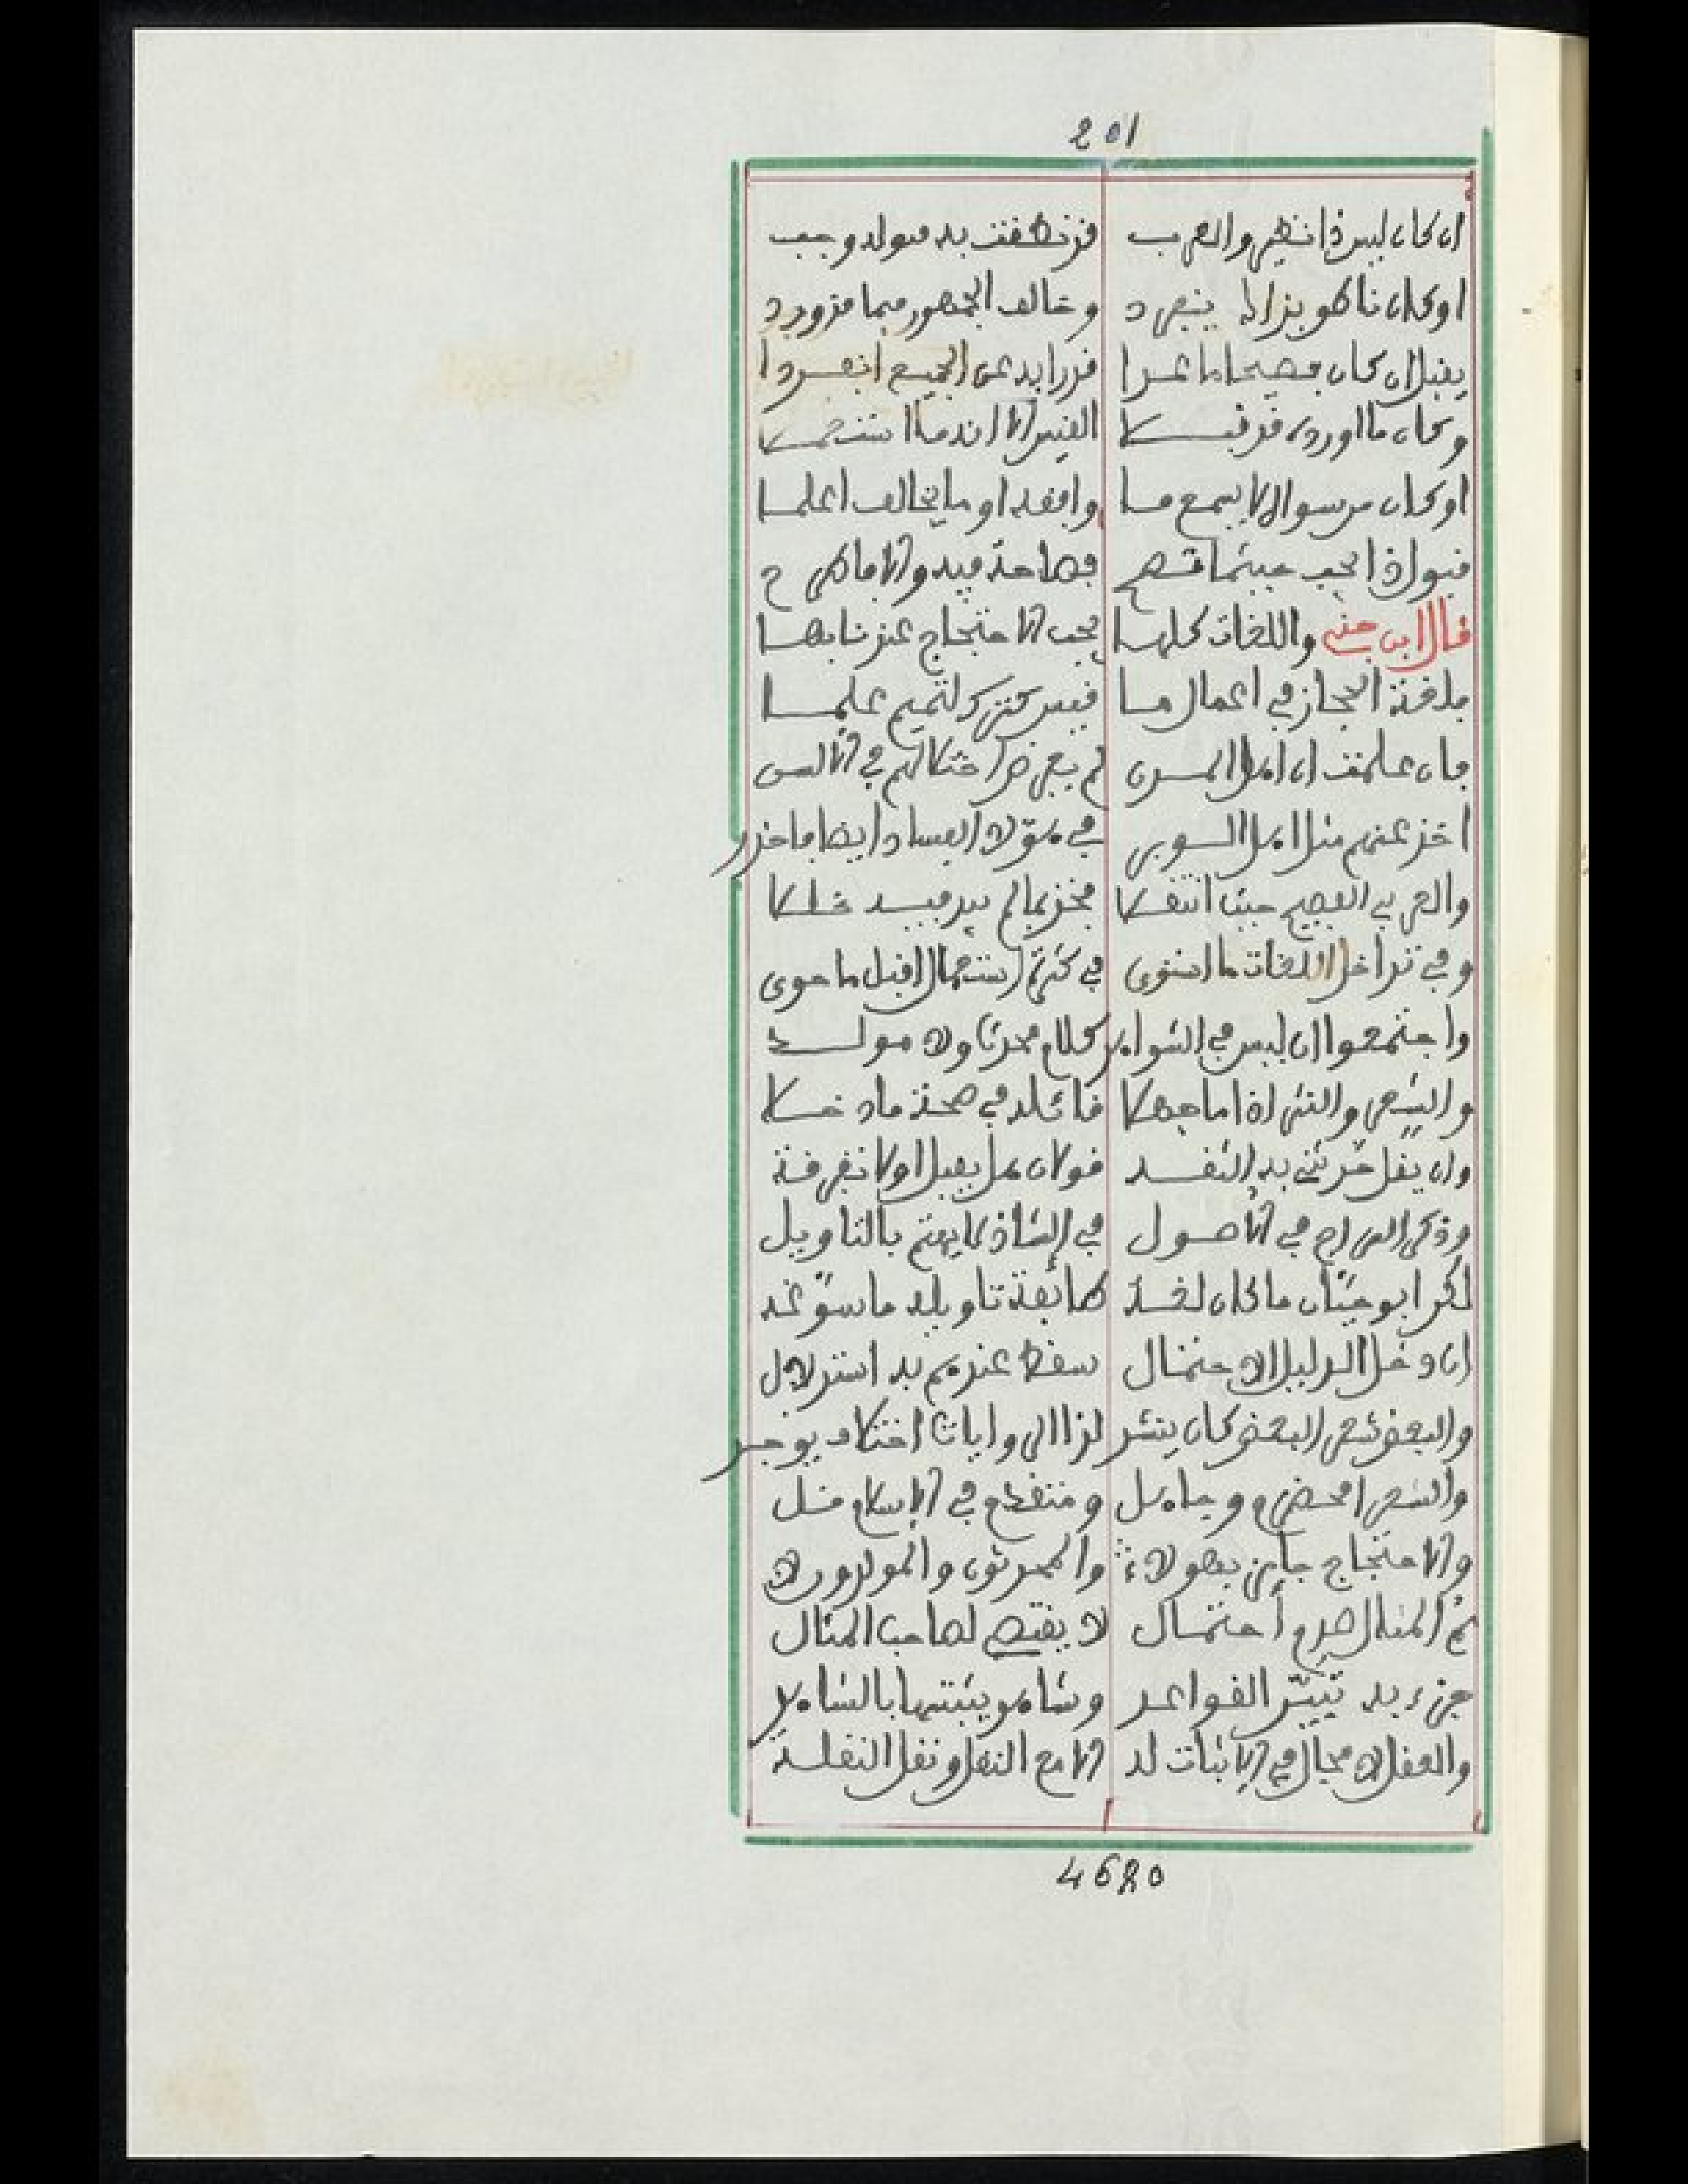 201
ان كان ليس ذا نظير والعرب قد نطقت به قبوله وجب
او كان ناطق بذا له ينفرد وخالف الجمهور فيما قد ورد
يقبل ان كان فصيحا ما عدا قدرا به عن الجميع انفردا
وكان ما اورده قد قبلا القيس الا انه ما استعملا
او كان من سواه لا يسمع ما وافقه او ما يخالف اعلما
قبول ذا يجب حيثما تصح فصاحة فيه والا فاطرح
قال ابن جني واللغات كلها يجب الاحتجاج عند نابها
فلغة الحجاز في اعمال ما قيس كترك لتميم علما
فان علمت ان اهل المدن لم يعر ذا اختلالهم في الالسن
اخذ عنهم مثل اهل الوبر في هؤلاء الفساد ايضا فاحذر
والعربي الفصيح حيث انتقلا فخذ بما لم يبد فيه خللا
وفي تداخل اللغات ما استوى في كثرة استعمال اقبل ما حوى
واجتمعوا ان ليس في الشواهد كلام محدث ولا مولد
والشعر والنثر اذا ما جهلا قائله في صحة ما دخلا
وان يقل حدثني به الثقه قولان هل يقبل اولا تفرقة
وذكر السراج في الاصول في الشاذ لا يهتم بالتاويل
لكن ابو حيان ما كان لغة طائفة تاويله ما سوغه
ان دخل الدليل الاحتمال سقط عندهم به استدلال
والبعض شعر البعض كان ينشد لذا الروايات اختلاف يوجد
والشعرا مخضرم وجاهل ومتقدم في الاسلام مثل
والاحتجاج جاء بهؤلاء والمحدثون والمولدون لا
ثم المثال صدع احتمال لا يقتضي لصاحب المثال
جزء به تبين القواعد وشاهد يثبتها بالشاهد
والعقل لا مجال في الاثبات له الا مع النقل ونقل النقلة
4620